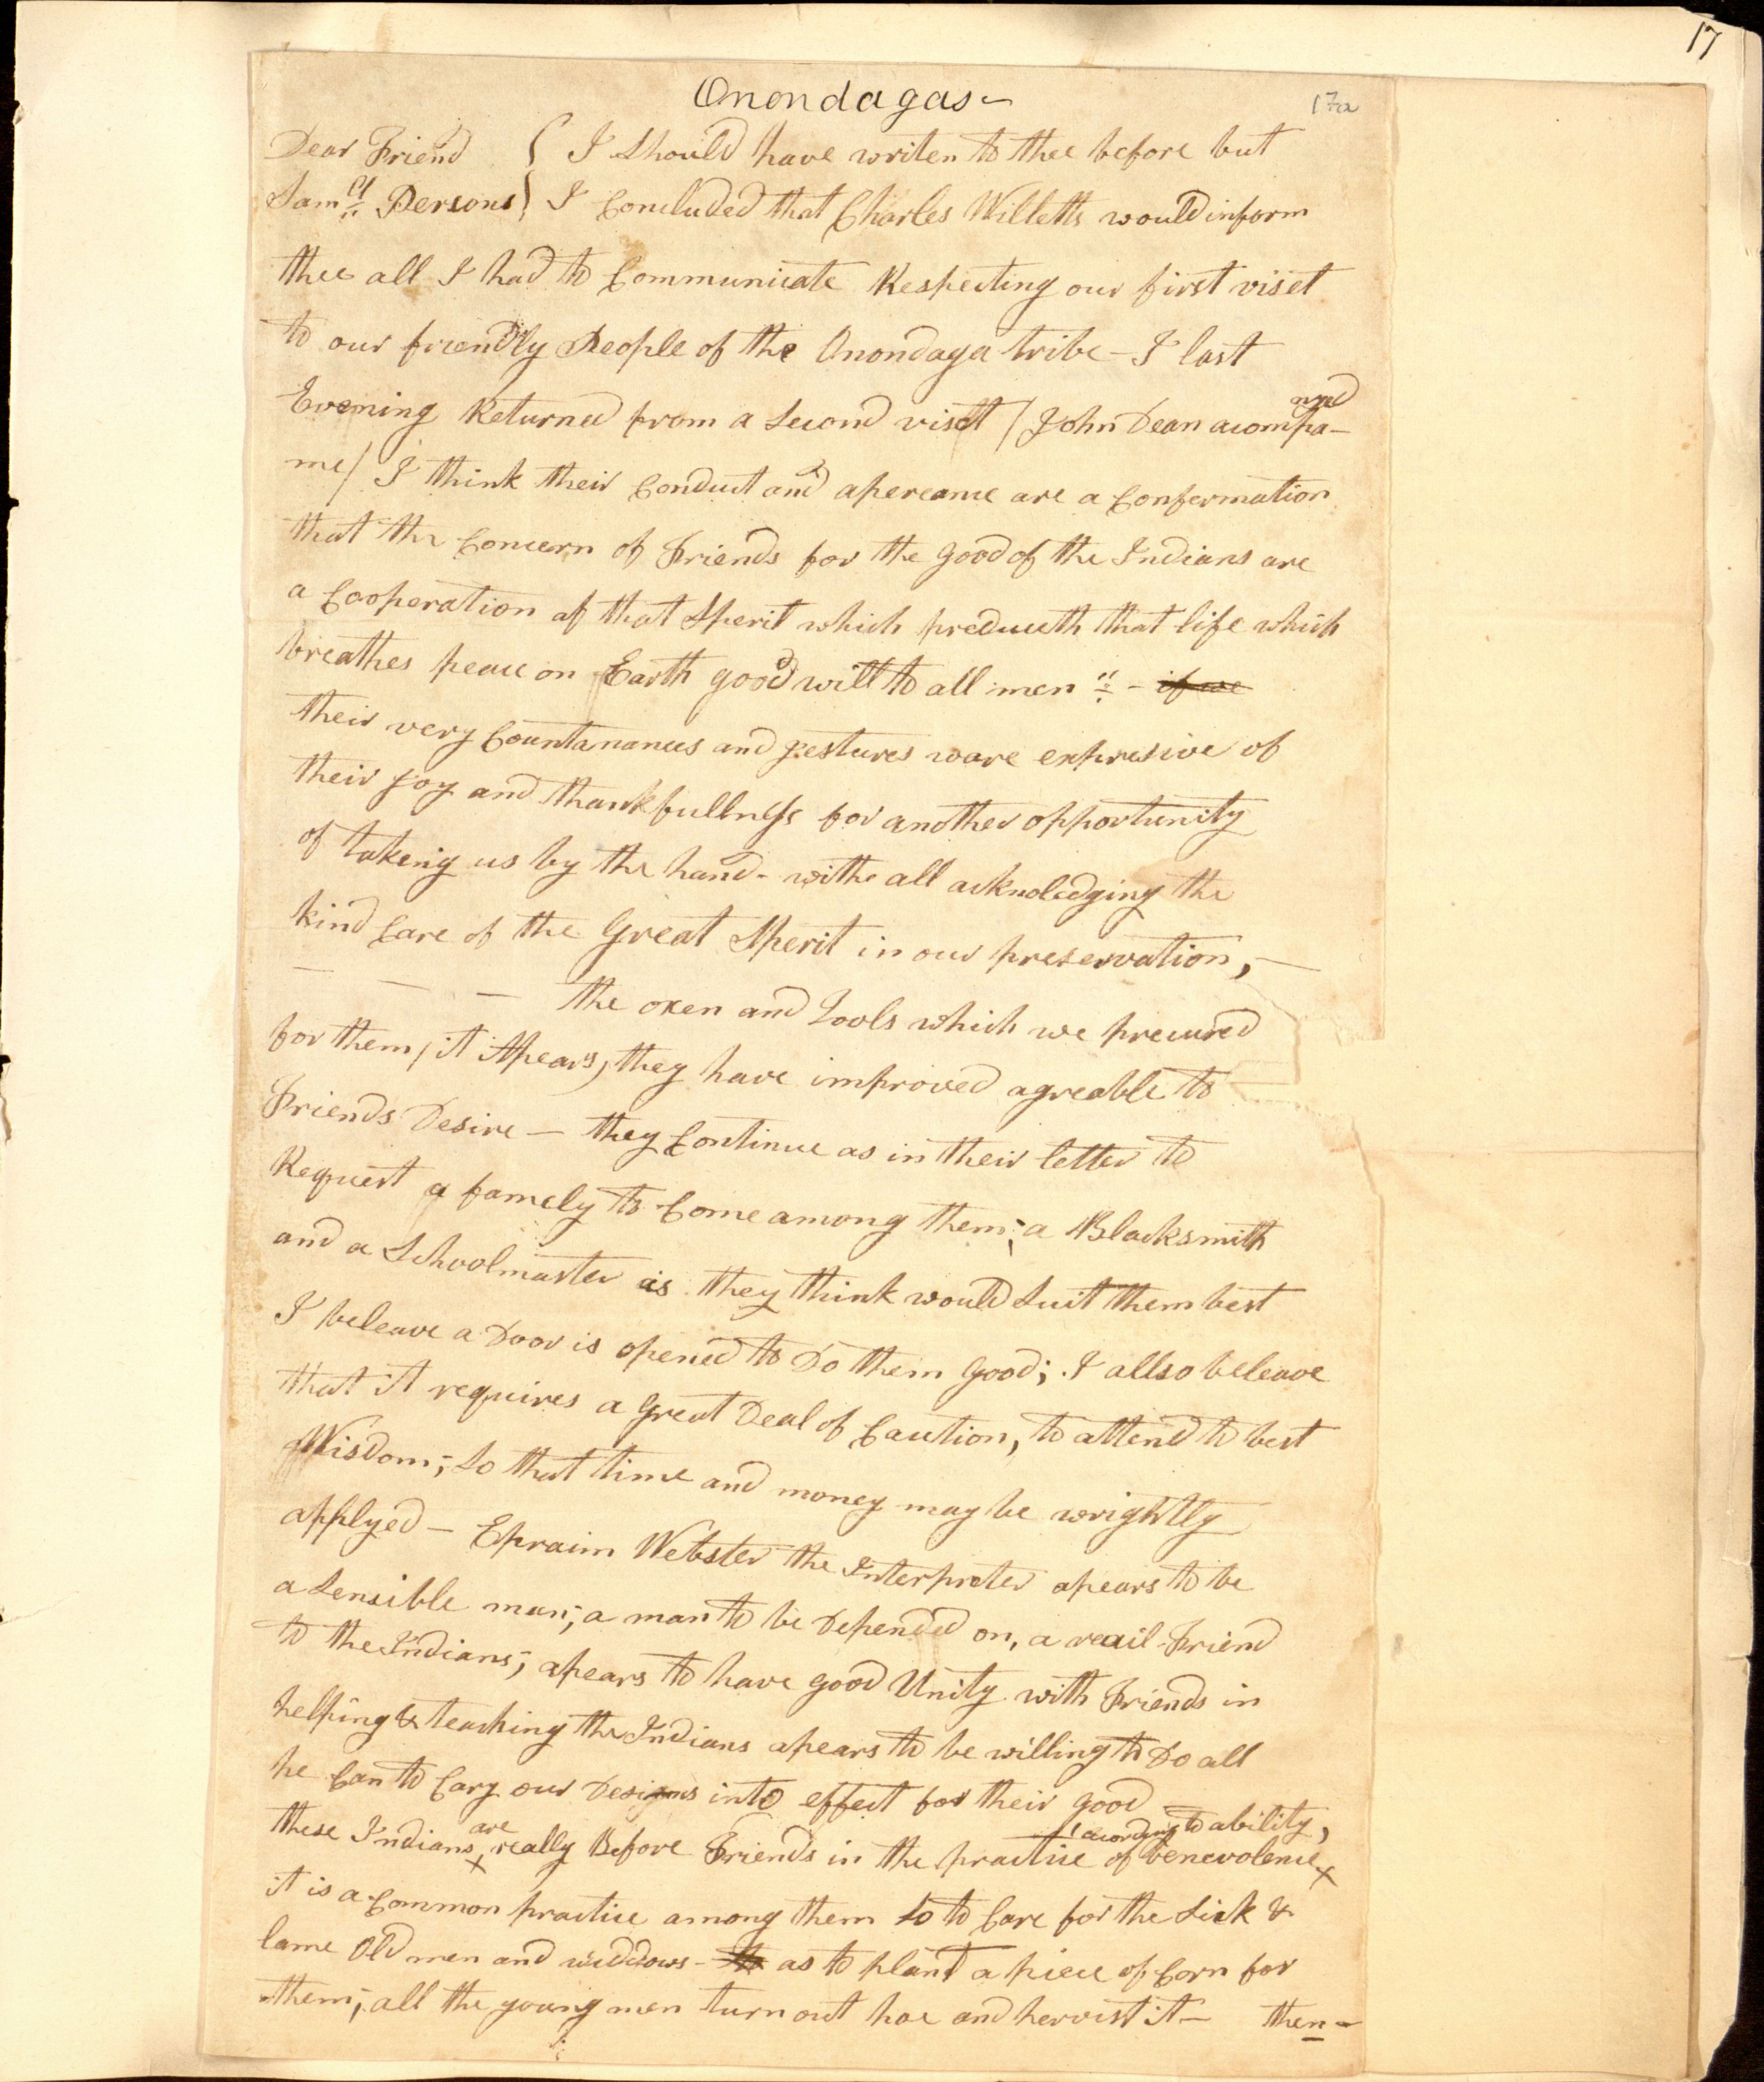 17
Onondagas-
17a
Dear Friend { I Should have writen to thee before but
Sam.ll Persons } I Concluded that Charles Willetts would inform
thee all I had to Communicate Respecting our first viset
to our friendly People of the Onondaga tribe - I last
Evening Returned from a Second visit / John Dean acompa-
nyed
me / I think their Conduct and apereance are a Confermation
that the Concern of Friends for the good of the Indians are
a Cooperation of that Sperit which produceth that life which
breathes peace on Earth good will to all men " - if we
their very Countanances and gestures ware expresive of
their joy and thankfullness for another opportunity
of takeing us by the hand - withe all acknoledging the
kind Care of the Great Sperit in our preservation, -
- - - the oxen and Tools which we precured
for them / it Apears, they have improved agreable to
Friends Desire - they Continue as in their letter to
Request a famely to Come among them; a Blacksmith
and a Schoolmaster as they think would Suit them best
I beleave a Door is opened to Do them Good; I allso beleave
that it requires a Great Deal of Caution, to attend to best
Wisdom; So that time and money may be wrightly
applyed - Epraim Webster the Interpreter apears to be
a Sensible man; a man to be Depended on, a reail Friend
to the Indians; apears to have good Unity with Friends in
helping & teaching the Indians apears to be willing to Do all
he Can to Cary our Designs into effect for their good -
are acording to ability,
these Indians x really Before Friends in the practise of benevolence x
it is a Common practise among them So to Care for the Sick &
lame Old men and widdows - to as to plant a piece of Corn for
them; all the young men turn out hoe and hervist it - then -